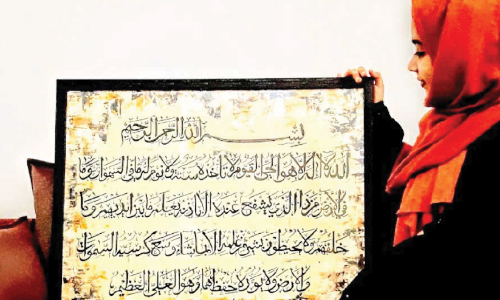 بسم الله الرحمن الرحيم
الله لا اله الا هو الحي القيوم لا تأخذه سنة ولا نوم له ما في السموات وما
في الارض من ذا الذي يشفع عنده الا باذنه يعلم ما بين ايديهم وما
خلفهم ولا يحيطون بشيء من علمه الا بما شاء وسع كرسيه السموات
والارض ولا يؤده حفظهما وهو العلي العظيم